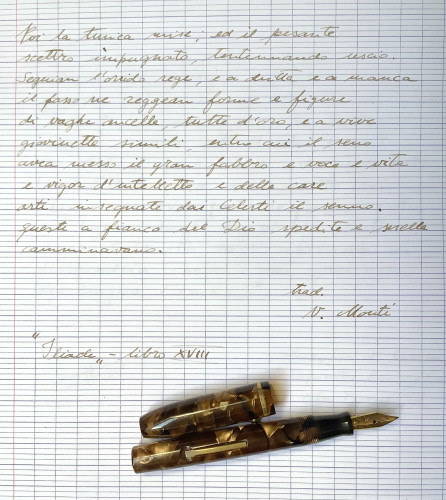 Poi la tunica mise; ed il pesante
scettro impugnato, tentennando uscìo.
Seguian l'orrido rege, e a dritta e a manca
il passo ne reggean forme e figure
di vaghe ancelle, tutte d'oro, e a vive
giovinette simili, entro cui il seno
avea messo il gran fabbro e voce e vita
e vigor d'intelletto e delle care
arti insegnate dai Celesti il senno.
queste a fianco del Dio spedite e snelle
camminavano.
trad.
V. Monti
"Iliade" - libro XVIII